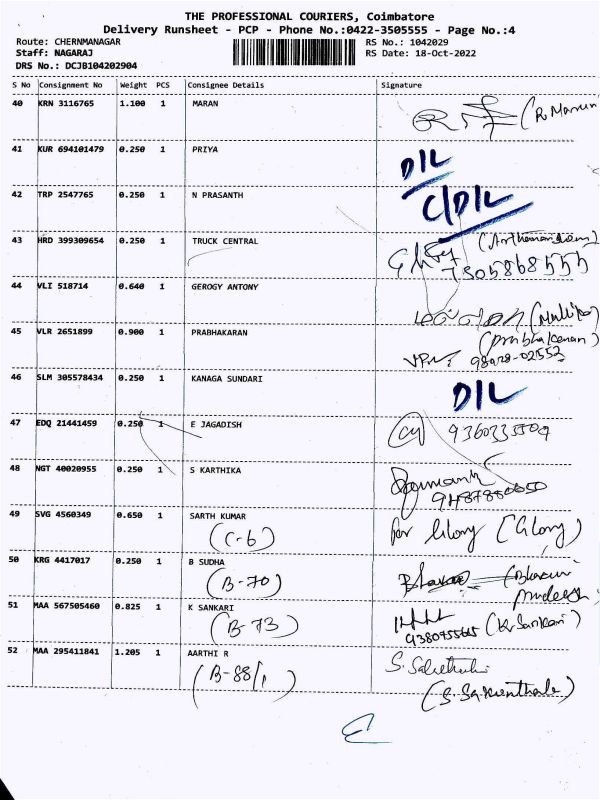 THE PROFESSIONAL COURIERS, Coimbatore
Delivery Runsheet - PCP - Phone No.:0422-3505555 - Page No.:4
Route: CHERNMANAGAR RS No.: 1042029
Staff: NAGARAJ RS Date: 18-Oct-2022
DRS No.: DCJB104202904
S No Consignment No Weight PCS Consignee Details Signature
40 KRN 3116765 1.100 1 MARAN
41 KUR 694101479 0.250 1 PRIYA D/L
42 TRP 2547765 0.250 1 N PRASANTH C/D/L
43 HRD 399309654 0.250 1 TRUCK CENTRAL
7305868555
44 VLI 518714 0.640 1 GEROGY ANTONY
45 VLR 2651899 0.900 1 PRABHAKARAN (Prabhakaran)
46 SLM 305578434 0.250 1 KANAGA SUNDARI D/L
47 EDQ 21441459 0.250 1 E JAGADISH
48 NGT 40020955 0.250 1 S KARTHIKA
49 SVG 4560349 0.650 1 SARTH KUMAR for Glory (Glory)
(C-6)
50 KRG 4417017 0.250 1 B SUDHA
(B-70)
51 MAA 567505460 0.825 1 K SANKARI
(B-73) (K. Sankari)
52 MAA 295411841 1.205 1 AARTHI R
(B-88/1)